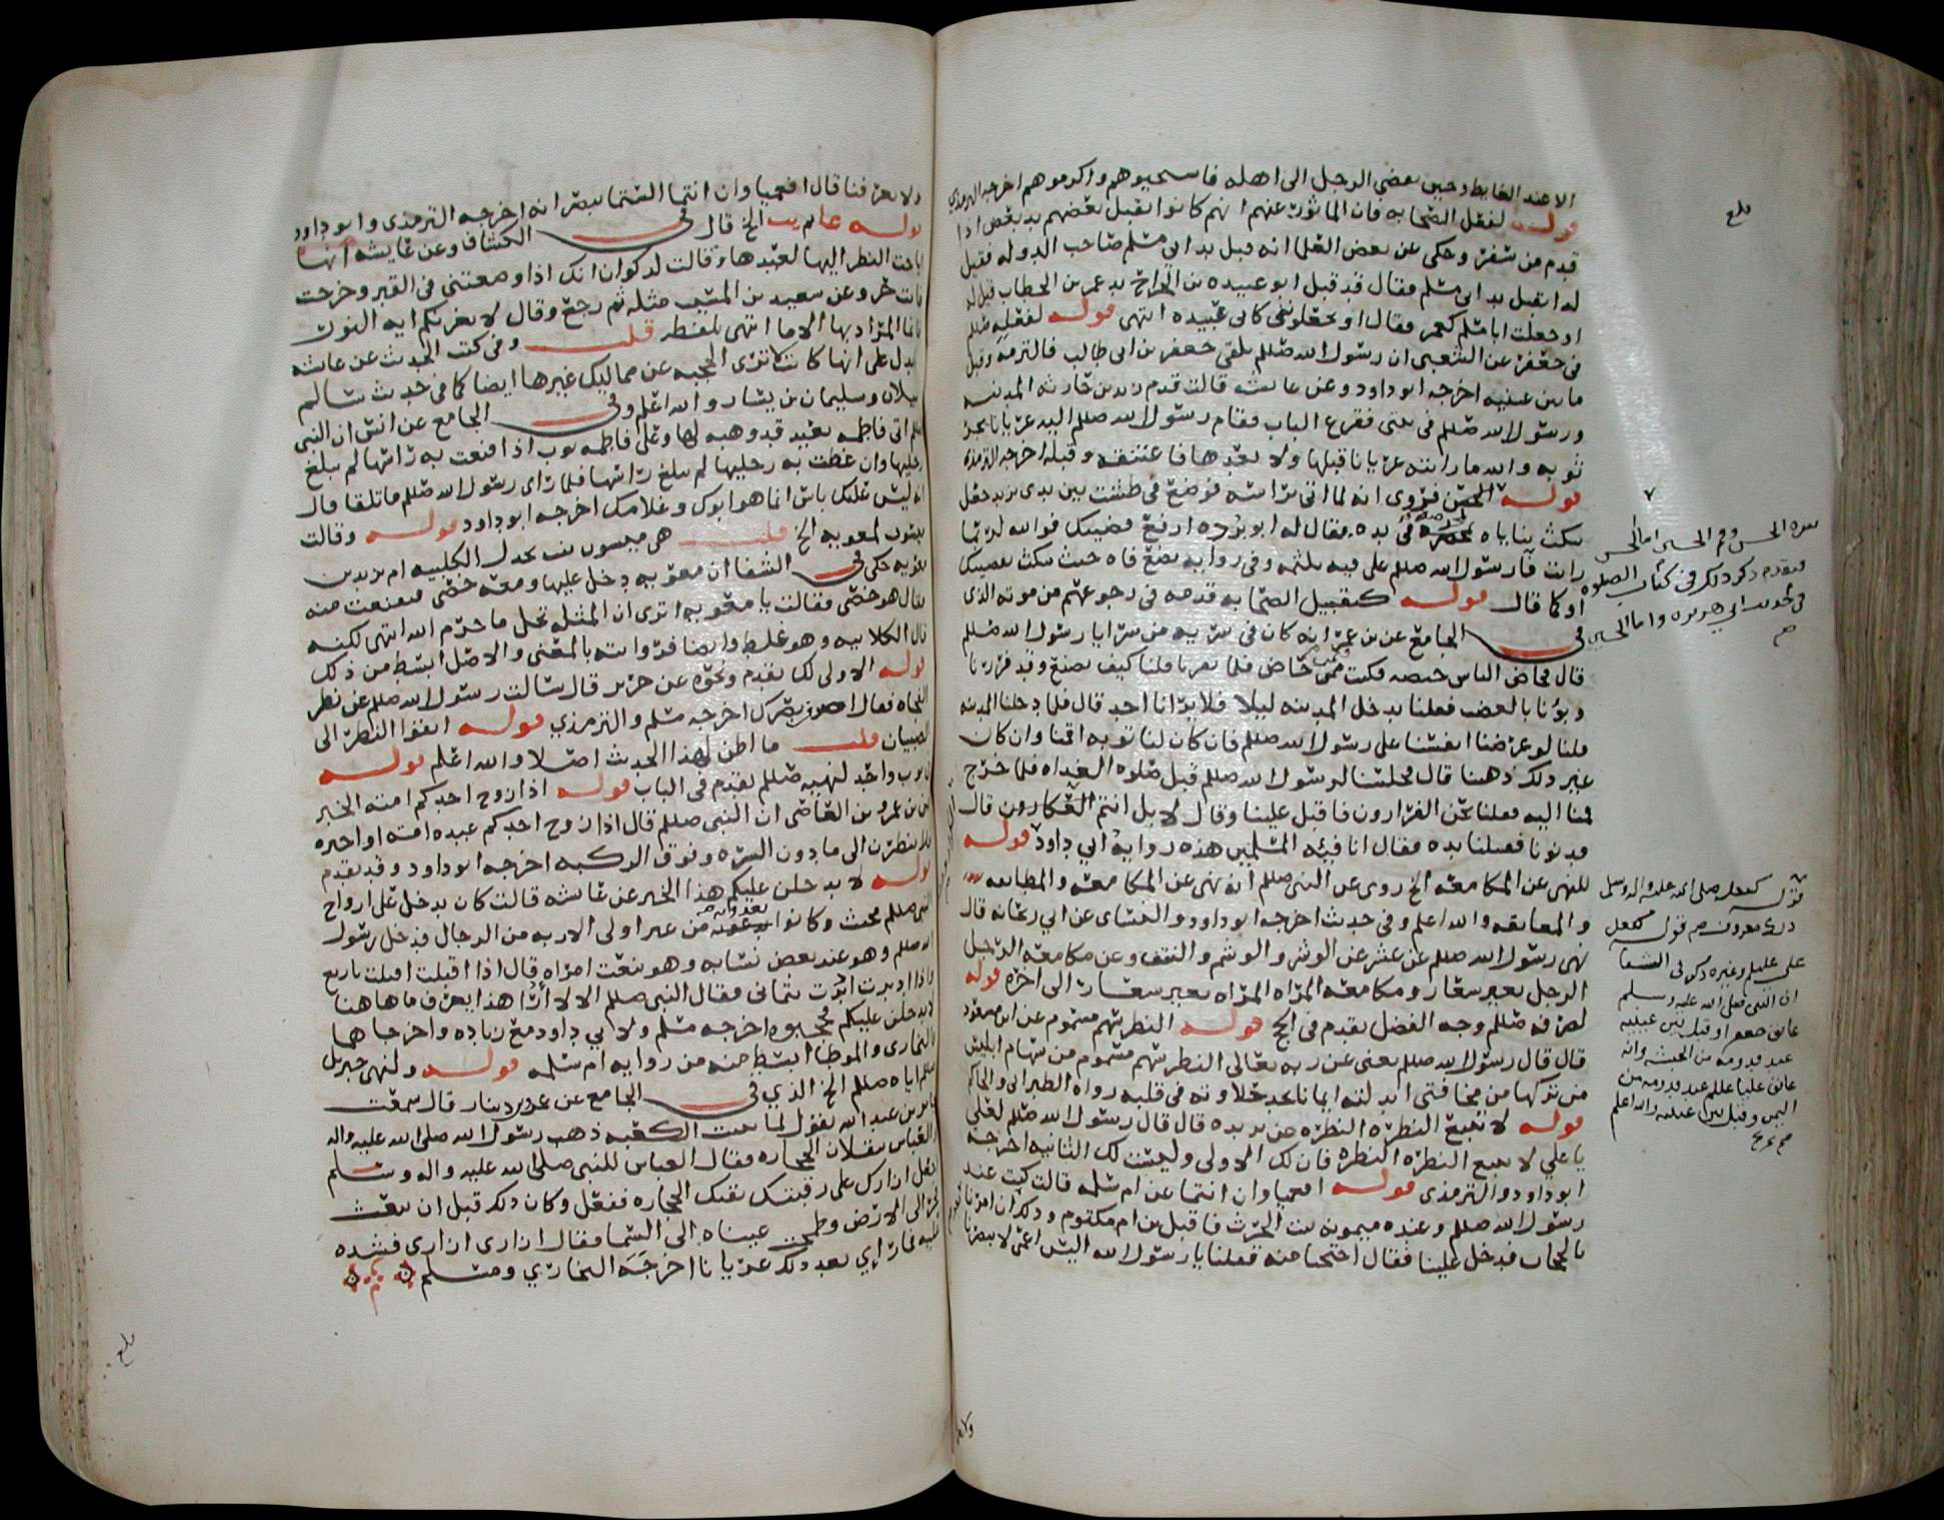 الا عند الغايط وحين يفضي الرجل الى اهله فاستحيوهم واكرموهم اخرجه الترمذي
قوله لفعل الصحابه فان الماثور عنهم انهم كانوا يقبل بعضهم يد بعض اذا
قدم من سفر وحكى عن بعض العلما انه قبل يد ابي مسلم صاحب الدوله فقيل
له اتقبل يد ابي مسلم فقال قد قبل ابو عبيده بن الجراح يد عمر بن الخطاب قيل له
او جعلت ابا مسلم كعمر فقال او تجعلونني كابي عبيده انتهى قوله لفعله صللم
في جعفر عن الشعبي ان رسول الله صللم تلقى جعفر بن ابي طالب فالتزمه وقبل
ما بين عينيه اخرجه ابو داود وعن عائشه قالت قدم زيد بن حارثه المدينه
ورسول الله صللم في بيتي فقرع الباب فقام رسول الله صللم اليه عريانا يجر
ثوبه والله ما رايته عريانا قبلها ولا بعدها فاعتنقه وقبله اخرجه الترمذي
قوله الحسن فروي انه لما اتي براسه فوضع في طشت بين يدي يزيد جعل
ينكث ثناياه بمخصره في يده فقال له ابو برزه ارفع قضيبك فوالله لربما
رايت فا رسول الله صللم على فيه يلثمه وفي روايه يضع فاه حيث ينكث بقضيبك
او كما قال قوله كتقبيل الصحابه قدمه في رجوعهم من موته الذي
في الجامع عن بن عمر انه كان في سريه من سرايا رسول الله صللم
قال فحاص الناس حيصه فكنت فيمن حاص فلما نفرنا قلنا كيف نصنع وقد فررنا
وبؤنا بالغضب فقلنا ندخل المدينه ليلا فلا يرانا احد قال فلما دخلنا المدينه
قلنا لو عرضنا انفسنا على رسول الله صللم فان كان لنا توبه اقمنا وان كان
غير ذلك ذهبنا قال فجلسنا لرسول الله صللم قبل صلوه الغداه فلما خرج
قمنا اليه فقلنا نحن الفرارون فاقبل علينا وقال لا بل انتم العكارون قال
فدنونا فقبلنا يده فقال انا فيئه المسلمين هذه روايه ابي داود قوله
للنهي عن المكامعه الخ روي عن النبي صللم انه نهى عن المكامعه والمطابعه
والمعانقه والله اعلم وفي حديث اخرجه ابو داود والنسائى عن ابي ريحانه قال
نهى رسول الله صللم عن عشر عن الوشر والوشم والنتف وعن مكامعه الرجل
الرجل بغير شعار ومكامعه المراه المراه بغير شعار الى اخره قوله
لصرفه صللم وجه الفضل تقدم في الحج قوله النظر سهم مسموم عن ابن مسعود
قال قال رسول الله صللم يعني عن ربه تعالى النظر سهم مسموم من سهام ابليس
من تركها من مخافتي ابدلته ايمانا يجد حلاوته في قلبه رواه الطبراني والحاكم
قوله لا تتبع النظره النظره عن بريده قال قال رسول الله صللم لعلي
يا علي لا تتبع النظره النظره فان لك الاولى وليست لك الثانيه اخرجه
ابو داود والترمذي قوله افعمياوان انتما عن ام سلمه قالت كنت عند
رسول الله صللم وعنده ميمونه بنت الحرث فاقبل بن ام مكتوم وذلك بعد ان امرنا
بالحجاب فدخل علينا فقال احتجبا منه فقلنا يا رسول الله اليس اعمى لا يبصرنا
بلغ
سره الحسن وفم الحسين اما الحسن
فتقدم ذكر ذلك في كتاب الصلوه
في حديث ابي هريره واما الحسين
قوله كفعله صلى الله عليه واله وسلم
على عليلم وغيره ذكر في الشفا
ان النبي صلى الله عليه وسلم
عانق جعفر او قبل بين عينيه
عند قدومه من الحبشه وانه
عانق عليا عللم عند قدومه من
اليمن وقبل بين عينيه والله اعلم
ولا يعرفنا قال افعمياوان انتما الستما تبصرانه اخرجه الترمذي وابو داود
قوله عايشه الخ قال في الكشاف وعن عايشه انها
اباحت النظر اليها لعبدها وقالت لذكوان انك اذا وضعتني في القبر وخرجت
فانت حر وعن سعيد بن المسيب مثله ثم رجع وقال لا يغرنكم ايه النور
فانما المراد بها الاما انتهى بلفظه قلت وفي كتب الحديث عن عائشه
يدل على انها كانت ترى الحجبه عن مماليك غيرها ايضا كما في حديث سالم
سبلان وسليمان بن يشار والله اعلم وفي الجامع عن انس ان النبي
صللم اتى فاطمه بعبد قد وهبه لها وعلى فاطمه ثوب اذا قنعت به راسها لم يبلغ
رجليها وان غطت به رجليها لم يبلغ راسها فلما راى رسول الله صللم ما تلقا قال
انه ليس عليك باس انما هو ابوك وغلامك اخرجه ابو داود قوله وقالت
ميسون لمعويه الخ قلت هي ميسون بنت بحدل الكلبيه ام يزيد بن
معويه حكى في الشفا ان معويه دخل عليها ومعه خصي فتقنعت منه
فقال هو خصي فقالت يا معويه اترى ان المثله تحل ما حرم الله انتهى لكنه
قال الكلابيه وهو غلط وايضا فروايته بالمعنى والاصل ابسط من ذلك
قوله الاولى لك تقدم ونحوه عن جرير قال سالت رسول الله صللم عن نظر
الفجاه فقال اصرف بصرك اخرجه مسلم والترمذي قوله اتقوا النظر الى
الصبيان قلت ما اظن لهذا الحديث اصلا والله اعلم قوله
ثوب واحد لنهيه صللم تقدم في الباب قوله اذا زوج احدكم امته الخبر
عن بن عمرو بن العاص ان النبي صللم قال اذا زوج احدكم عبده امته او اجيره
فلا ينظرن الى ما دون السره وفوق الركبه اخرجه ابو داود وقد تقدم
قوله لا يدخلن عليكم هذا الخبر عن عائشه قالت كان يدخل على ازواج
النبي صللم مخنث وكانوا يعدونه من غير اولى الاربه من الرجال فدخل رسول
الله صللم وهو عند بعض نسائه وهو ينعت امراه قال اذا اقبلت اقبلت باربع
واذا ادبرت ادبرت بثمان فقال النبي صللم الا لا ارى هذا يعرف ما هاهنا
لا يدخلن عليكم فحجبوه اخرجه مسلم ولابي داود مع زياده واخرجاهما
والبخاري والموطا ابسط منه من روايه ام سلمه قوله ولنهى جبريل
صللم اياه صللم الخ الذي في الجامع عن عمرو بن دينار قال سمعت
جابر بن عبد الله يقول لما بنيت الكعبه ذهب رسول الله صلى الله عليه واله
والعباس ينقلان الحجاره فقال العباس للنبي صلى الله عليه واله وسلم
اجعل ازارك على رقبتك يقيك الحجاره ففعل وكان ذلك قبل ان يبعث
فخر الى الارض وطمحت عيناه الى السما فقال ازاري ازاري فشده
عليه فما رؤي بعد ذلك عريانا اخرجه البخاري ومسلم
بلغ
ولا يعر